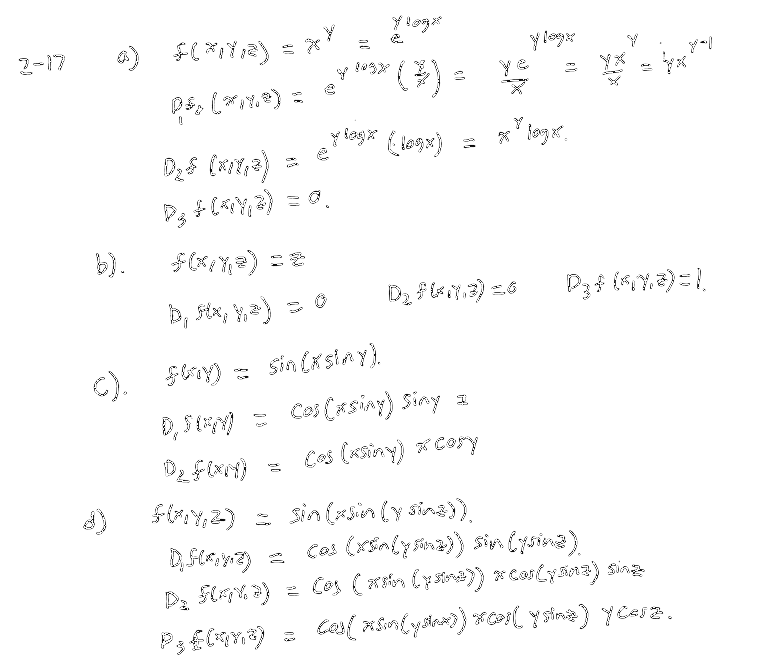 2-17 a) f(x,y,z) = x^y = e^{y log x}
D₁f(x,y,z) = e^{y log x} (y/x) = y e^{y log x}/x = y x^y/x = yx^{y-1}
D₂f (x,y,z) = e^{y log x} (log x) = x^y log x.
D₃ f(x,y,z) = 0.
b). f(x,y,z) = z
D₁ f(x,y,z) = 0 D₂ f(x,y,z) = 0 D₃ f (x,y,z) = 1.
c). f(x,y) = sin(x sin y).
D₁ f(x,y) = cos(x sin y) sin y
D₂ f(x,y) = cos(x sin y) x cos y
d) f(x,y,z) = sin(x sin(y sin z)).
D₁f(x,y,z) = cos (x sin(y sin z)) sin(y sin z).
D₂ f(x,y,z) = cos (x sin (y sin z)) x cos(y sin z) sin z
D₃ f(x,y,z) = cos(x sin(y sin x)) x cos( y sin z) y cos z.